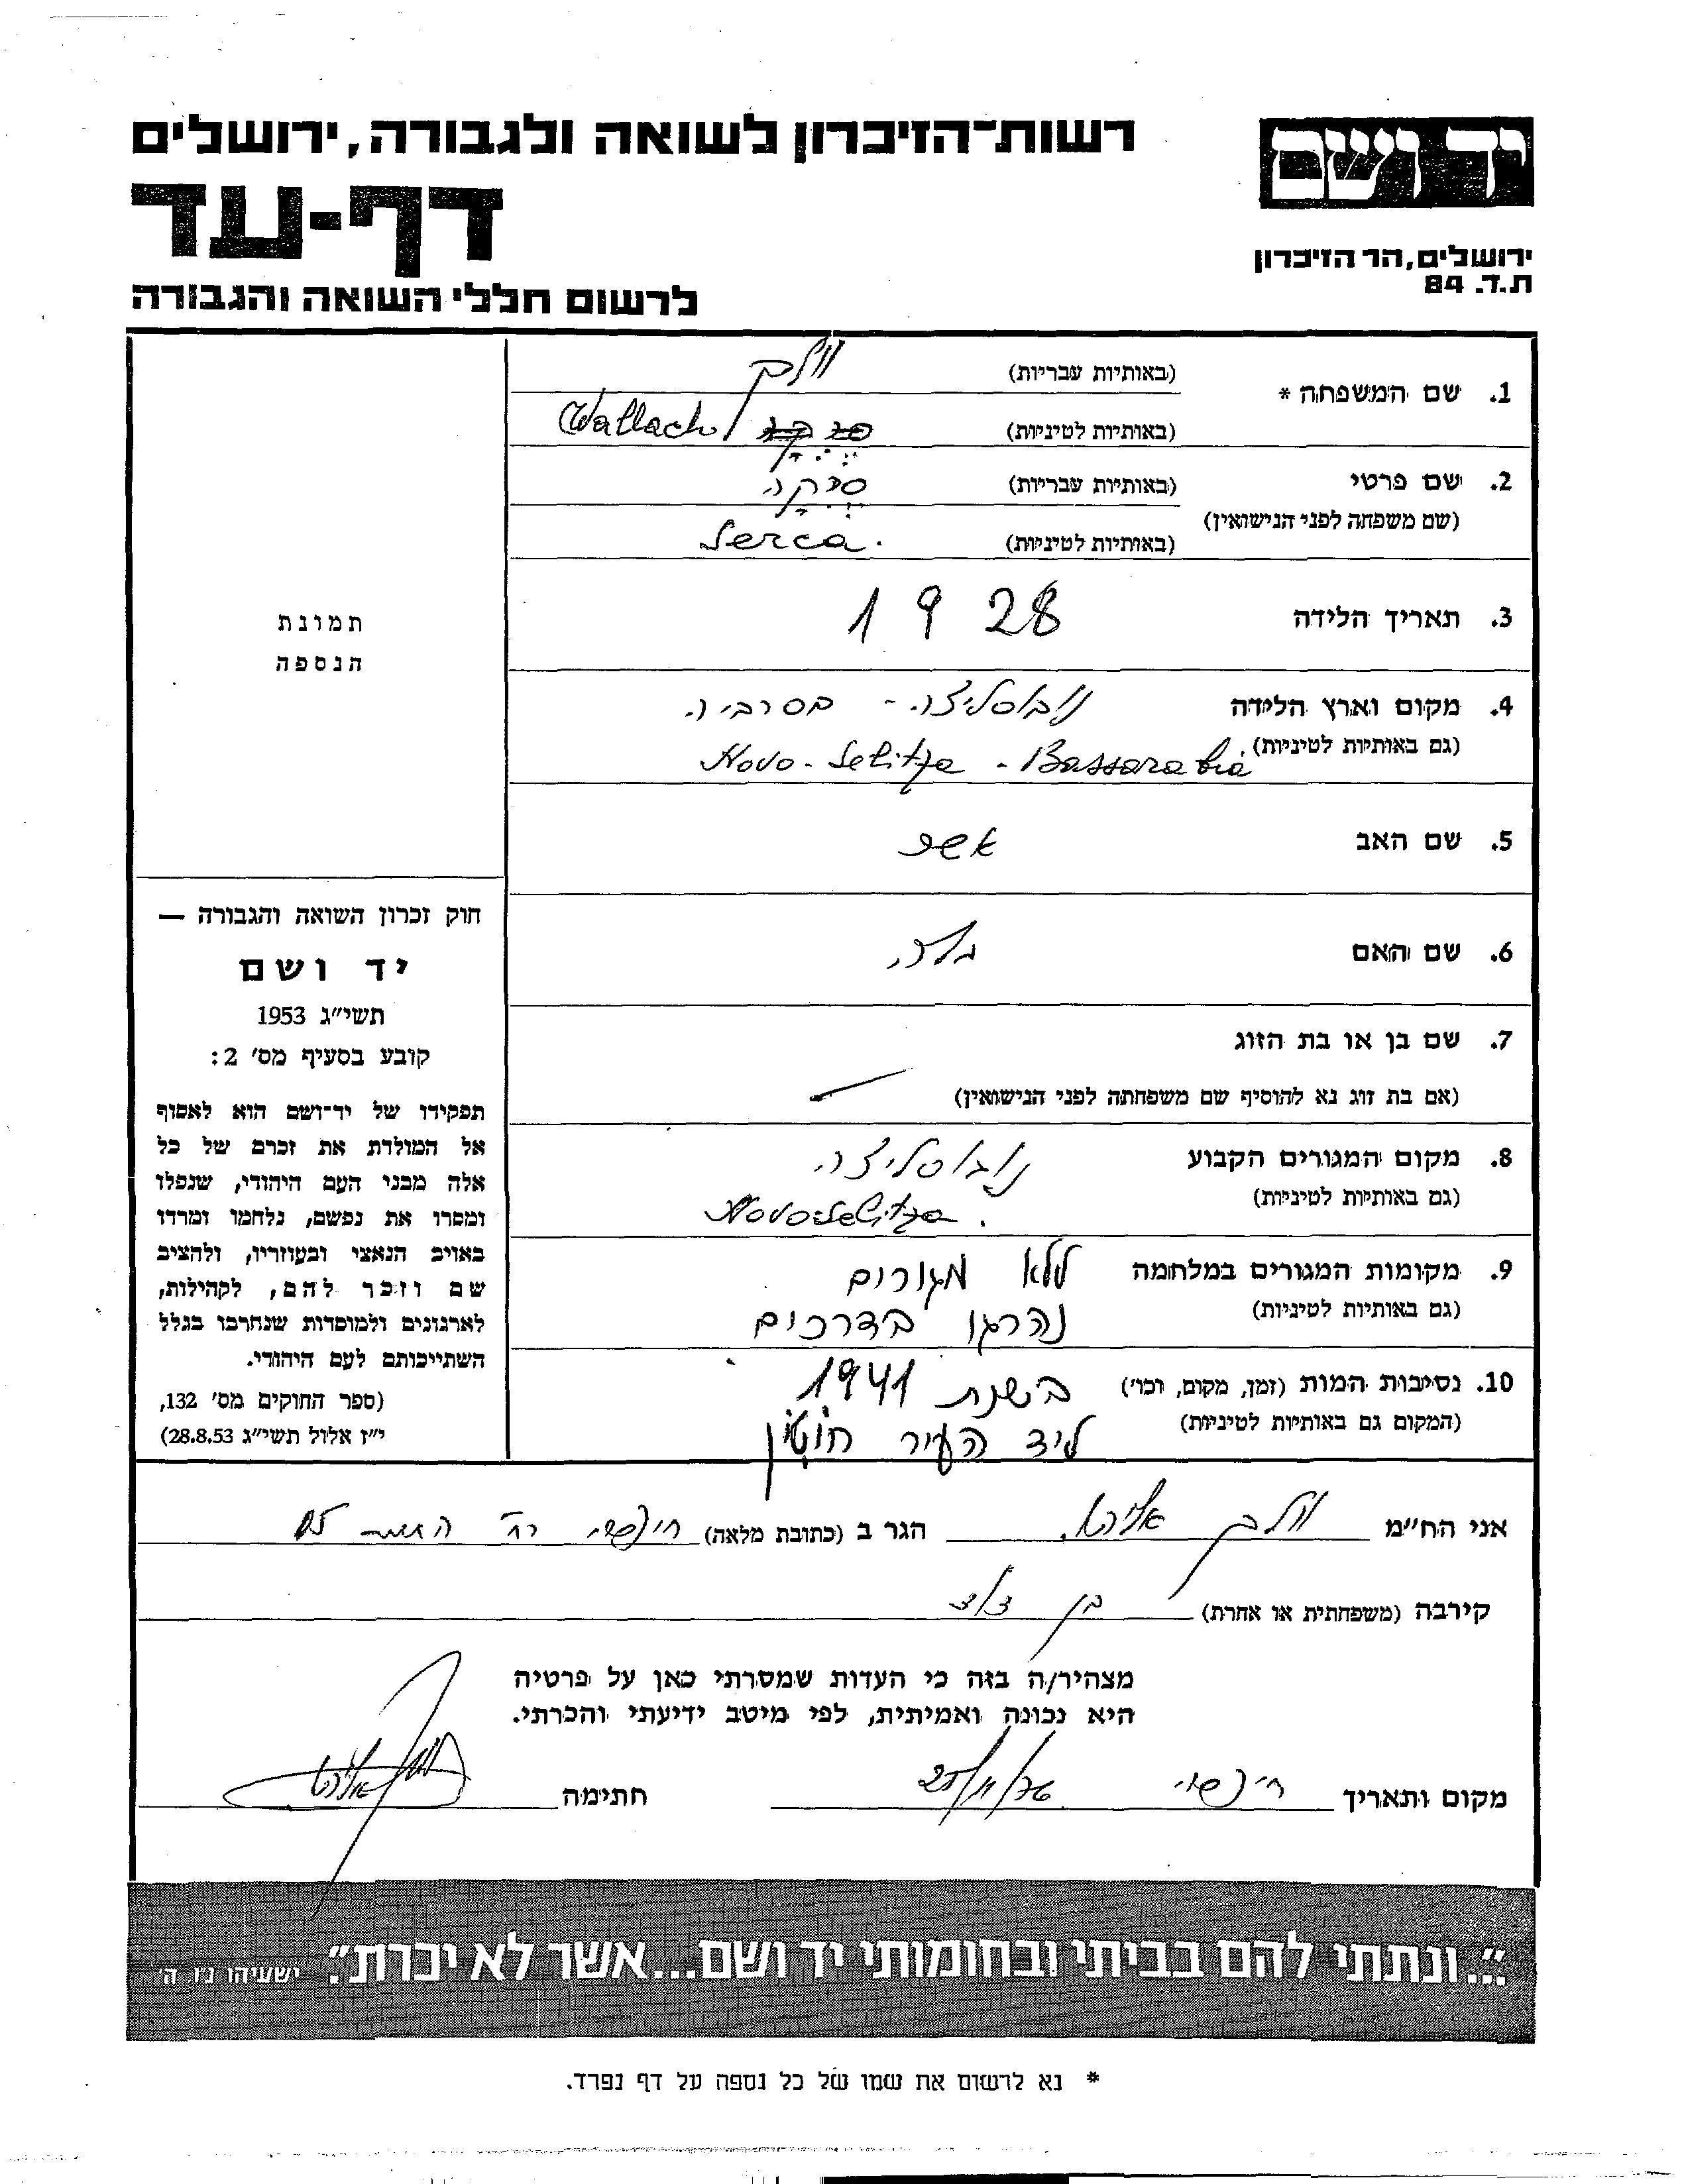 רשות־הזיכרון לשואה ולגבורה, ירושלים
דף-עד
לרשום חללי השואה והגבורה
יד ושם
ירושלים, הר הזיכרון
ת.ד. 84
1. שם המשפחה *
(באותיות עבריות) וולך
(באותיות לטיניות) Wallach
2. שם פרטי
(באותיות עבריות) סרקה
(שם משפחה לפני הנישואין)
(באותיות לטיניות) Serca.
3. תאריך הלידה 1928
4. מקום וארץ הלידה נובוסליצה - בסרביה.
(גם באותיות לטיניות) Novo-Selitza - Bassarabia
5. שם האב אשר
6. שם האם
7. שם בן או בת הזוג
(אם בת זוג נא להוסיף שם משפחתה לפני הנישואין)
8. מקום המגורים הקבוע נובוסליצה.
(גם באותיות לטיניות) Novoselitza.
9. מקומות המגורים במלחמה ללא מגורים
(גם באותיות לטיניות) נהרגו בדרכים
10. נסיבות המות (זמן, מקום, וכו') בשנת 1941
(המקום גם באותיות לטיניות) ליד העיר חוטין
תמונת
הנספה
חוק זכרון השואה והגבורה —
יד ושם
תשי"ג 1953
קובע בסעיף מס' 2:
תפקידו של יד־ושם הוא לאסוף
אל המולדת את זכרם של כל
אלה מבני העם היהודי, שנפלו
ומסרו את נפשם, נלחמו ומרדו
באויב הנאצי ובעוזריו, ולהציב
שם וזכר להם, לקהילות,
לארגונים ולמוסדות שנחרבו בגלל
השתייכותם לעם היהודי.
(ספר החוקים מס' 132,
י"ז אלול תשי"ג 28.8.53)
אני הח"מ וולך הגר ב (כתובת מלאה)
קירבה (משפחתית או אחרת) בן דוד
מצהיר/ה בזה כי העדות שמסרתי כאן על פרטיה
היא נכונה ואמיתית, לפי מיטב ידיעתי והכרתי.
מקום ותאריך חתימה
"...ונתתי להם בביתי ובחומותי יד ושם...אשר לא יכרת". ישעיהו נ״ו, ה׳
* נא לרשום את שמו של כל נספה על דף נפרד.